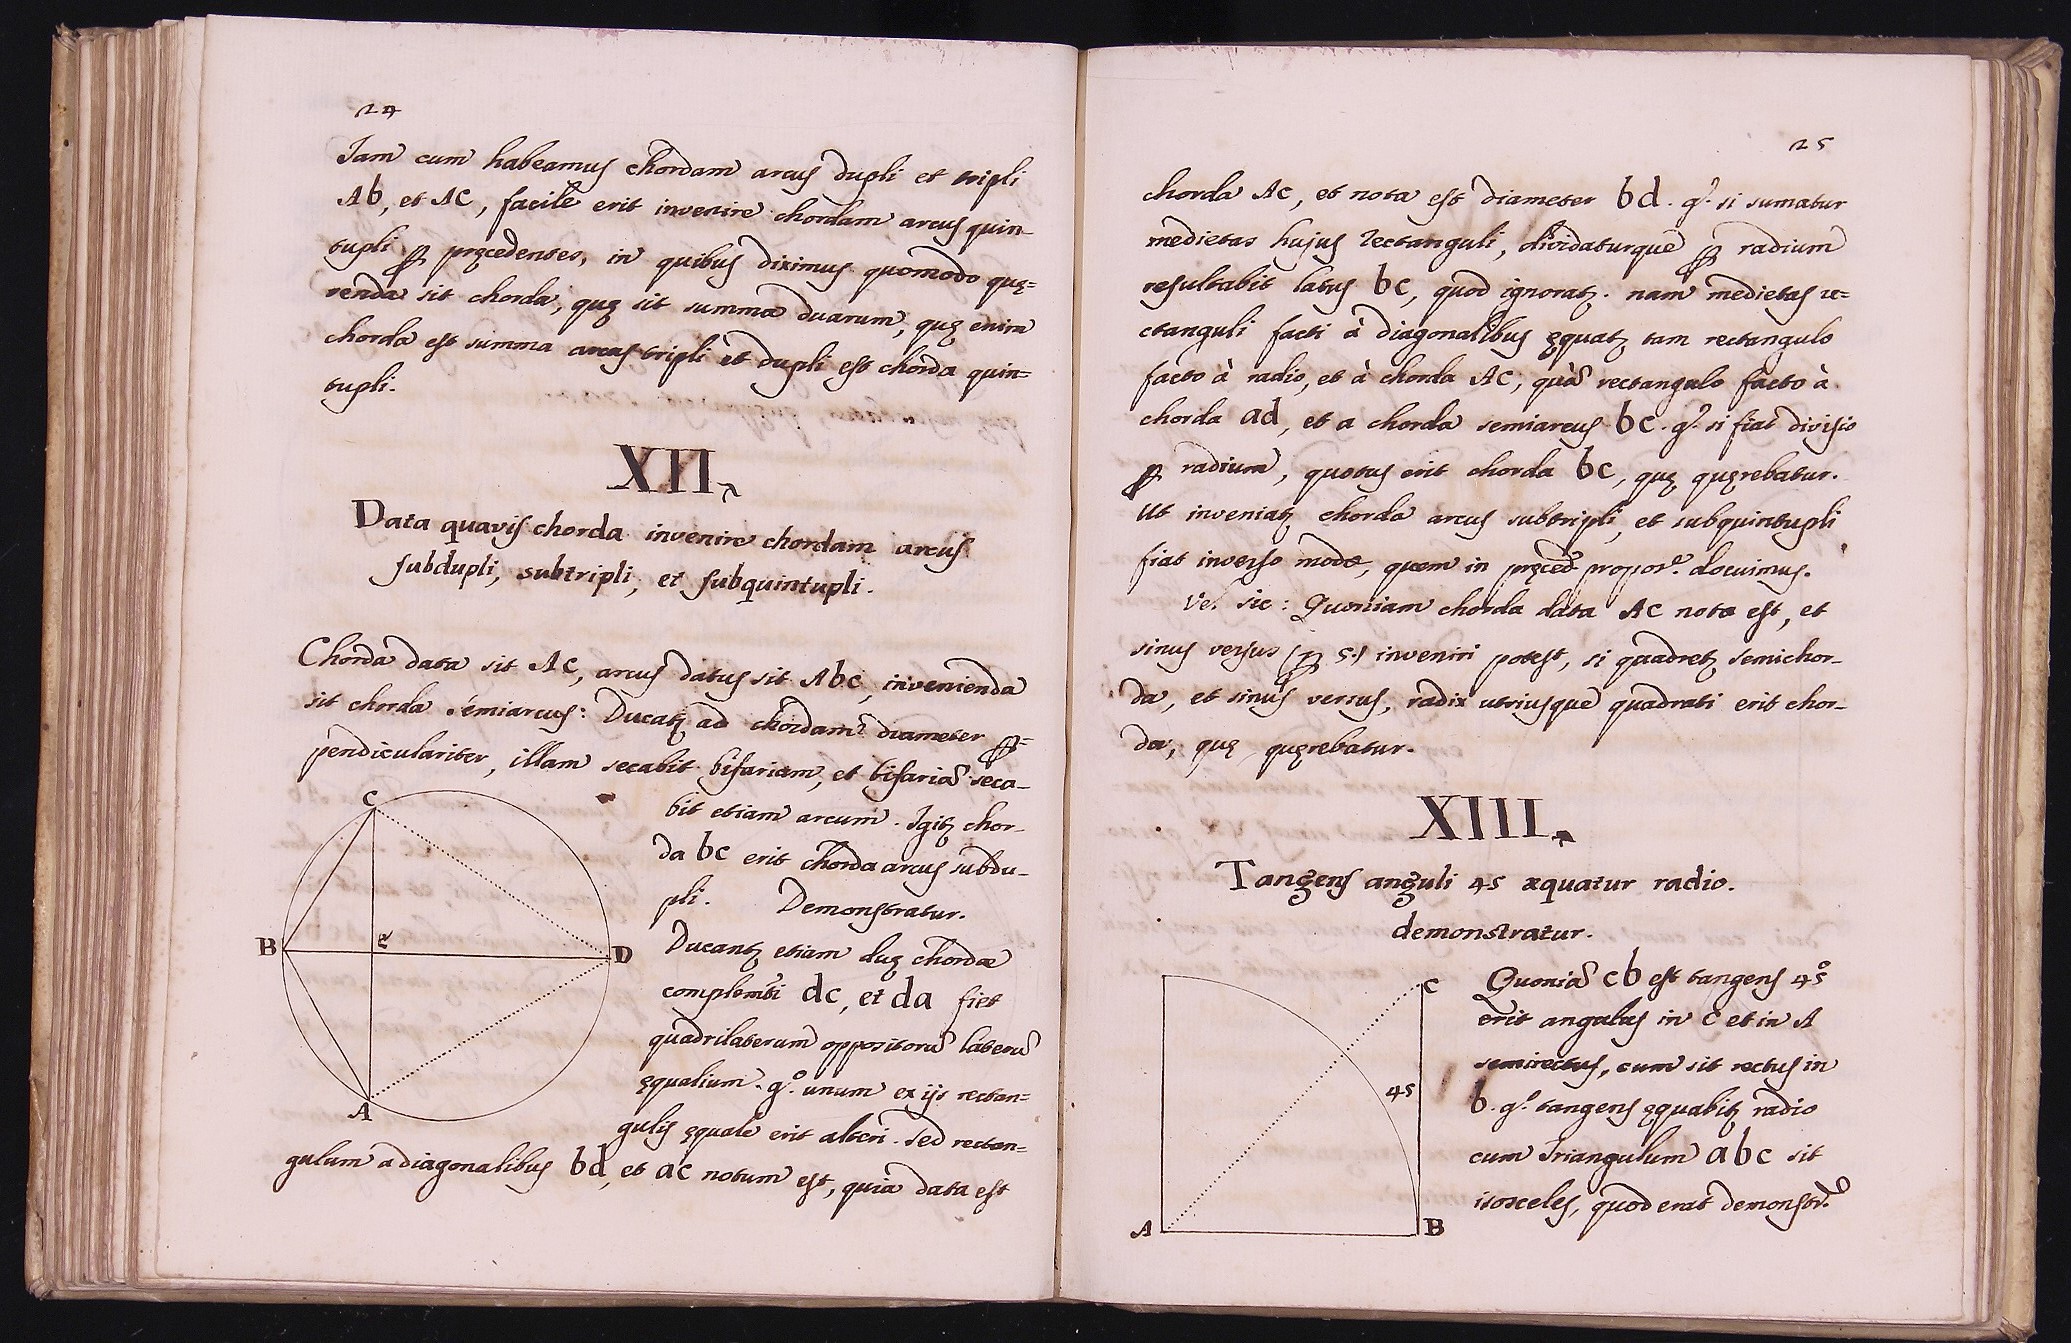 24
Jam cum habeamus chordam arcus dupli et tripli
Ab, et Ac, facile erit invenire chordam arcus quin-
tupli ꝑ pręcedentes, in quibus diximus quomodo quę-
renda sit chorda, quę sit summa duarum, quę enim
chorda est summa arcus tripli et dupli est chorda quin-
tupli.
XII.
Data quavis chorda invenire chordam arcus
subdupli, subtripli, et subquintupli.
Chorda data sit Ac, arcus datus sit Abc, invenienda
sit chorda semiarcus: Ducatꝫ ad chordam diameter ꝑ-
pendiculariter, illam secabit bifariam, et bifariã seca-
bit etiam arcum. Igitꝫ chor-
da bc erit chorda arcus subdu-
pli. Demonstratur.
Ducantꝫ etiam duę chordæ
complemẽti dc, et da fiet
quadrilaterum oppositorũ laterũ
ęqualium. gͦ. unum ex ijs rectan-
gulis ęquale erit alteri. Sed rectan-
gulum a diagonalibus bd, et ac notum est, quia data est
C
B
e
D
A
25
chorda Ac, et nota est diameter bd. gͦ. si sumatur
medietas hujus rectanguli, dividaturque ꝑ radium
resultabit latus bc, quod ignoratꝫ. nam medietas re-
ctanguli facti à diagonalibus ęquatꝫ tam rectangulo
facto à radio, et à chorda Ac, quã rectangulo facto à
chorda ad, et a chorda semiarcus bc. gͦ. si fiat divisio
ꝑ radium, quotus erit chorda bc, quę quęrebatur.
Ut inveniatꝫ chorda arcus subtripli, et subquintupli
fiat inverso modo, quem in pręced. propoᵉ. docuimus.
Vel sic: Quoniam chorda data Ac nota est, et
sinus versus (ꝑ 5.) inveniri potest, si quadretꝫ semichor-
da, et sinus versus, radix utriusque quadrati erit chor-
da, quę quęrebatur.
XIII.
Tangens anguli 45 æquatur radio.
demonstratur.
Quoniã cb est tangens 45°
erit angulus in c et in A
semirectus, cum sit rectus in
b. gͦ. tangens ęquabitꝫ radio
cum Triangulum abc sit
isosceles, quod erat demonstrᵐ
C
45
A
B